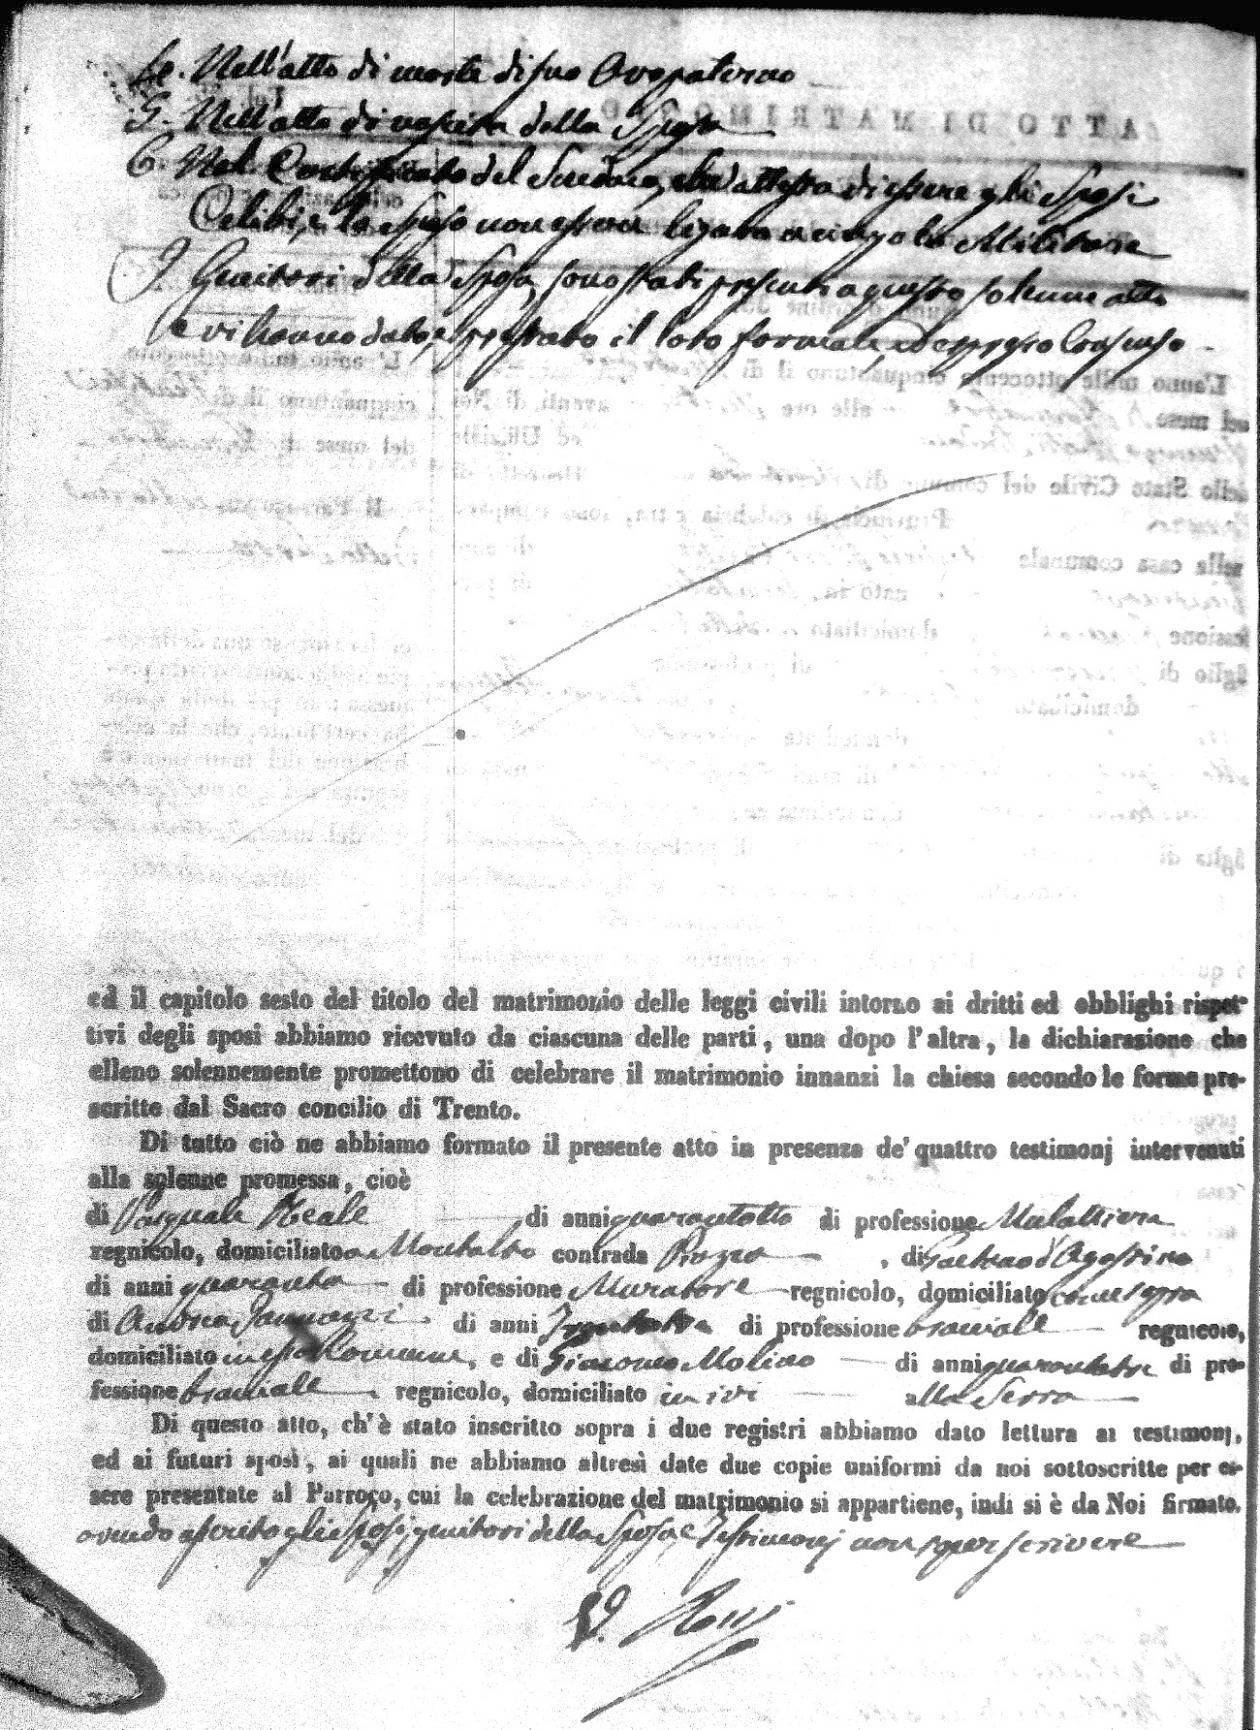 4. Nell'atto di morte di suo Avo paterno
5. Nell'atto di nascita della Sposa
6. Nel Certificato del Sindaco, che attesta di essere gli Sposi
Celibi, e lo sposo non essere legato a cingolo Militare
I Genitori della Sposa, sono stati presenti a questo solenne atto
e vi hanno dato, e prestato il loro formale, ed espresso Consenso
ed il capitolo sesto del titolo del matrimonio delle leggi civili intorno ai dritti ed obblighi rispet-
tivi degli sposi abbiamo ricevuto da ciascuna delle parti, una dopo l'altra, la dichiarazione che
elleno solennemente promettono di celebrare il matrimonio innanzi la chiesa secondo le forme pre-
scritte dal Sacro concilio di Trento.
Di tutto ciò ne abbiamo formato il presente atto in presenza de' quattro testimonj intervenuti
alla solenne promessa, cioè
di Pasquale Reale di anni quarantotto di professione Mulattiere
regnicolo, domiciliato a Montalto contrada Pozzo, di Gaetano d'Agostino
di anni quaranta di professione Muratore regnicolo, domiciliato come sopra
di Andrea Iannuzzi di anni di professione bracciale regnicolo,
domiciliato in esso Comune, e di Giacomo Molino di anni quarantatre di pro-
fessione bracciale regnicolo, domiciliato in ivi alla Serra
Di questo atto, ch'è stato inscritto sopra i due registri abbiamo dato lettura ai testimonj,
ed ai futuri sposi, ai quali ne abbiamo altresì date due copie uniformi da noi sottoscritte per es-
sere presentate al Parroco, cui la celebrazione del matrimonio si appartiene, indi si è da Noi firmato.
avendo asserito gli sposi, genitori della sposa, e Testimonj non saper scrivere
Rossi